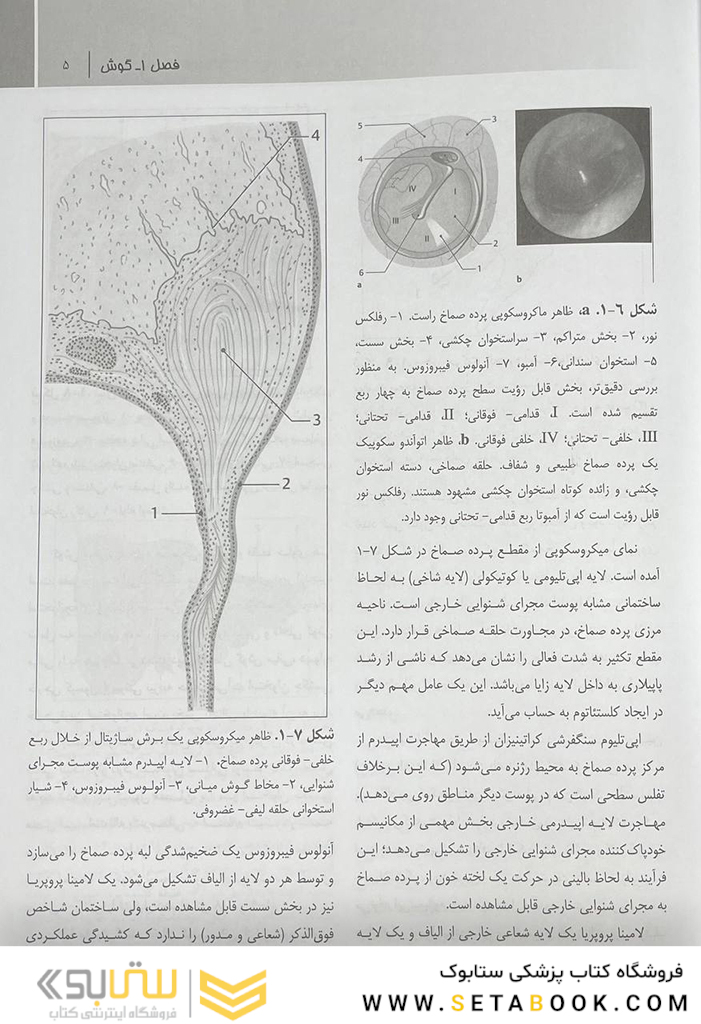 فصل ۱ـ گوش | ۵
3
5
4
IV
I
III
II
2
6
1
a
b
شکل ۶-۱. a، ظاهر ماکروسکوپی پرده صماخ راست. ۱- رفلکس
نور، ۲- بخش متراکم، ۳- سراستخوان چکشی، ۴- بخش سست،
۵- استخوان سندانی،۶- آمبو، ۷- آنولوس فیبروزوس. به منظور
بررسی دقیق‌تر، بخش قابل رؤیت سطح پرده صماخ به چهار ربع
تقسیم شده است. I، قدامی- فوقانی؛ II، قدامی- تحتانی؛
III، خلفی- تحتانی؛ IV، خلفی فوقانی. b، ظاهر اتوآندو سکوپیک
یک پرده صماخ طبیعی و شفاف. حلقه صماخی، دسته استخوان
چکشی، و زائده کوتاه استخوان چکشی مشهود هستند. رفلکس نور
قابل رؤیت است که از آمبوتا ربع قدامی- تحتانی وجود دارد.
نمای میکروسکوپی از مقطع پرده صماخ در شکل ۷-۱
آمده است. لایه اپی‌تلیومی یا کوتیکولی (لایه شاخی) به لحاظ
ساختمانی مشابه پوست مجرای شنوایی خارجی است. ناحیه
مرزی پرده صماخ، در مجاورت حلقه صماخی قرار دارد. این
مقطع تکثیر به شدت فعالی را نشان می‌دهد که ناشی از رشد
پاپیلاری به داخل لایه زایا می‌باشد. این یک عامل مهم دیگر
در ایجاد کلستئاتوم به حساب می‌آید.
اپی‌تلیوم سنگفرشی کراتینیزان از طریق مهاجرت اپیدرم از
مرکز پرده صماخ به محیط رژنره می‌شود (که این برخلاف
تفلس سطحی است که در پوست دیگر مناطق روی می‌دهد).
مهاجرت لایه اپیدرمی خارجی بخش مهمی از مکانیسم
خودپاک‌کننده مجرای شنوایی خارجی را تشکیل می‌دهد؛ این
فرآیند به لحاظ بالینی در حرکت یک لخته خون از پرده صماخ
به مجرای شنوایی خارجی قابل مشاهده است.
لامینا پروپریا یک لایه شعاعی خارجی از الیاف و یک لایه
4
3
2
1
شکل ۷-۱. ظاهر میکروسکوپی یک برش ساژیتال از خلال ربع
خلفی- فوقانی پرده صماخ. ۱- لایه اپیدرم مشابه پوست مجرای
شنوایی، ۲- مخاط گوش میانی، ۳- آنولوس فیبروزوس، ۴- شیار
استخوانی حلقه لیفی- غضروفی.
آنولوس فیبروزوس یک ضخیم‌شدگی لبه پرده صماخ را می‌سازد
و توسط هر دو لایه از الیاف تشکیل می‌شود. یک لامینا پروپریا
نیز در بخش سست قابل مشاهده است، ولی ساختمان شاخص
فوق‌الذکر (شعاعی و مدور) را ندارد که کشیدگی عملکردی
فروشگاه کتاب پزشکی ستابوک
WWW.SETABOOK.COM
ستابوک
فروشگاه اینترنتی کتاب